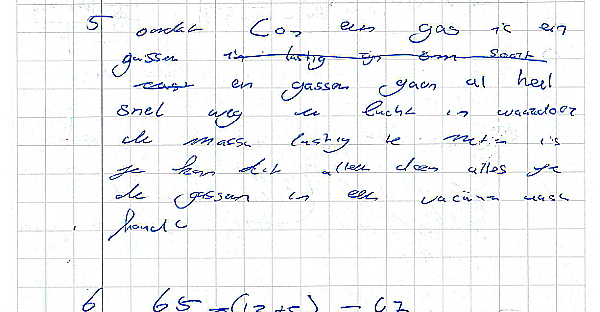 5 omdat CO2 een gas is en
gassen zijn lastig
en gassen gaan al heel
snel weg de lucht in waardoor
de massa lastig te meten is
je kan dit alleen doen alles je
de gassen in een vacuüm
houdt
6 65 - (12+5) = 47